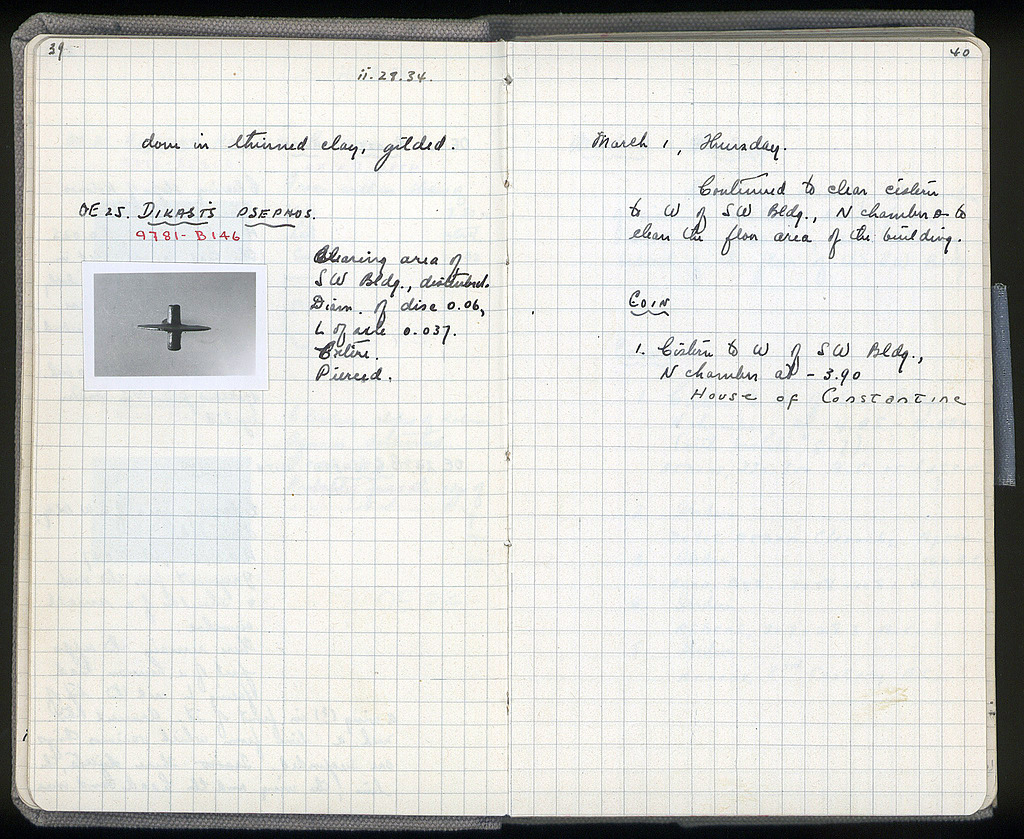 39
ii.28.34.
done in thinned clay, gilded.
OE 25. DIKAST'S PSEPHOS.
9781 - B 146
Clearing area of
SW Bldg., disturbed.
Diam. of disc 0.06,
L of axle 0.037.
Entire.
Pierced.
40
March 1, Thursday.
Continued to clear cistern
to W of SW Bldg., N chamber & to
clean the floor area of the building.
COIN
1. Cistern to W of SW Bldg.,
N chamber at - 3.90
House of Constantine